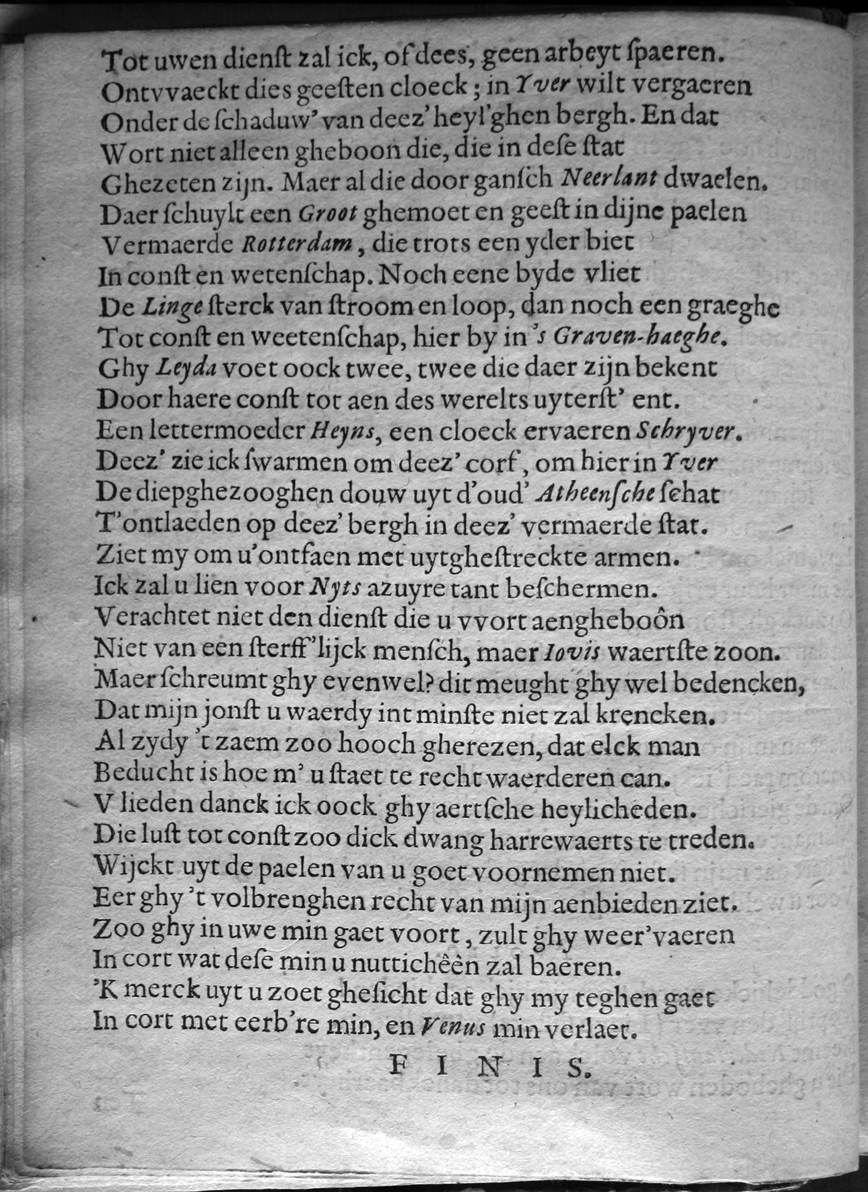 Tot uwen dienſt zal ick, of dees, geen arbeyt ſpaeren.
Ontvvaeckt dies geeſten cloeck; in Yver wilt vergaeren
Onder de ſchaduw' van deez' heyl'ghen bergh. En dat
Wort niet alleen gheboon die, die in deſe ſtat
Ghezeten zijn. Maer al die door ganſch Neerlant dwaelen.
Daer ſchuylt een Groot ghemoet en geeſt in dijne paelen
Vermaerde Rotterdam, die trots een yder biet
In conſt en wetenſchap. Noch eene byde vliet
De Linge ſterck van ſtroom en loop, dan noch een graeghe
Tot conſt en weetenſchap, hier by in 's Graven-haeghe.
Ghy Leyda voet oock twee, twee die daer zijn bekent
Door haere conſt tot aen des werelts uyterſt' ent.
Een lettermoeder Heyns, een cloeck ervaeren Schryver.
Deez' zie ick ſwarmen om deez' corf, om hier in Yver
De diepghezooghen douw uyt d'oud' Atheenſche ſchat
T'ontlaeden op deez' bergh in deez' vermaerde ſtat.
Ziet my om u'ontfaen met uytgheſtreckte armen.
Ick zal u lien voor Nyts azuyre tant beſchermen.
Verachtet niet den dienſt die u vvort aengheboôn
Niet van een ſterff'lijck menſch, maer Iovis waertſte zoon.
Maer ſchreumt ghy evenwel? dit meught ghy wel bedencken,
Dat mijn jonſt u waerdy int minſte niet zal krencken.
Al zydy 't zaem zoo hooch gherezen, dat elck man
Beducht is hoe m' u ſtaet te recht waerderen can.
V lieden danck ick oock ghy aertſche heylicheden.
Die luſt tot conſt zoo dick dwang harrewaerts te treden.
Wijckt uyt de paelen van u goet voornemen niet.
Eer ghy 't volbrenghen recht van mijn aenbieden ziet.
Zoo ghy in uwe min gaet voort, zult ghy weer'vaeren
In cort wat deſe min u nuttichêên zal baeren.
'K merck uyt u zoet gheſicht dat ghy my teghen gaet
In cort met eerb're min, en Venus min verlaet.
F I N I S.